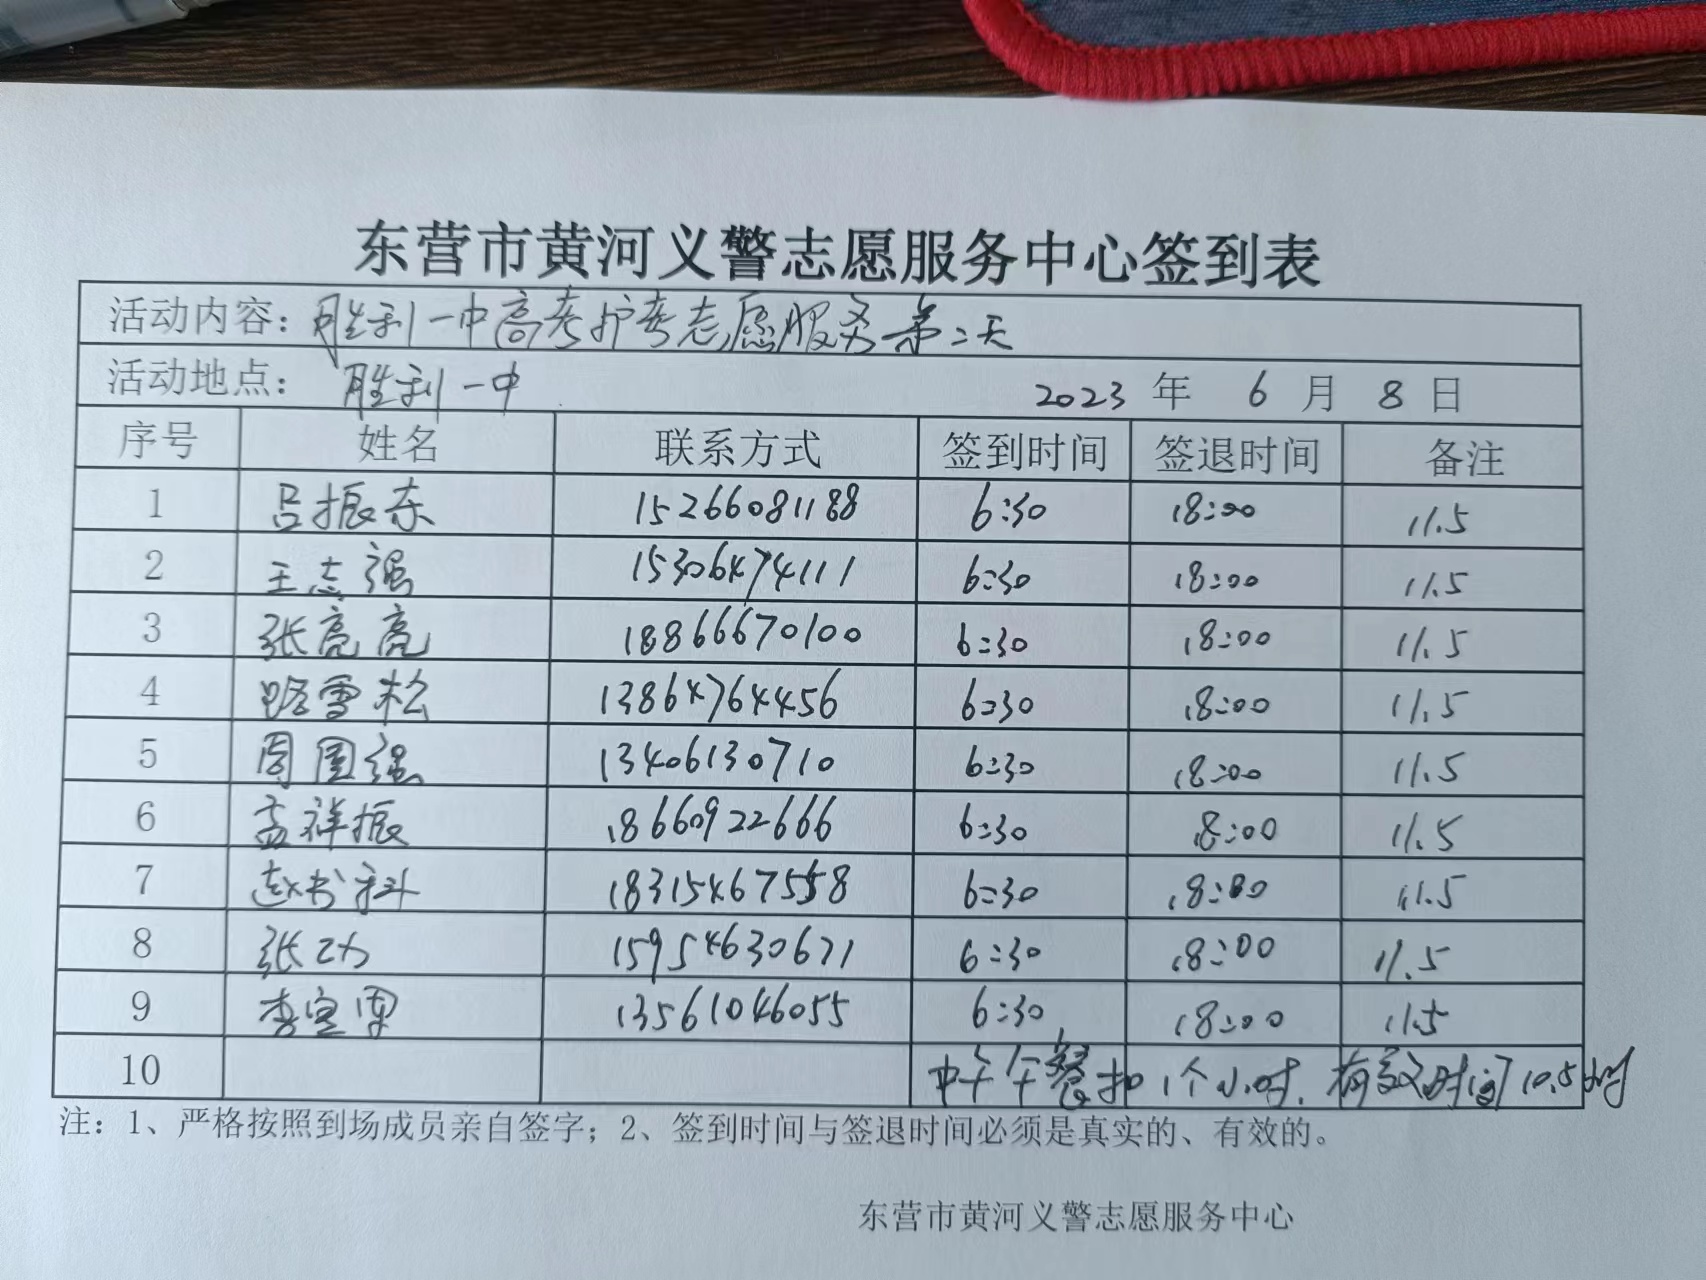 东营市黄河义警志愿服务中心签到表
活动内容：胜利一中高考护考志愿服务第二天
活动地点：胜利一中 2023年6月8日
序号 姓名 联系方式 签到时间 签退时间 备注
1 吕振东 15266081188 6:30 18:00 11.5
2 王志强 15306474111 6:30 18:00 11.5
3 张亮亮 18866670100 6:30 18:00 11.5
4 路雪松 13864764456 6:30 18:00 11.5
5 周国强 13406130710 6:30 18:00 11.5
6 孟祥振 18660922666 6:30 18:00 11.5
7 赵书科 18315467558 6:30 18:00 11.5
8 张功 15954630671 6:30 18:00 11.5
9 李宝国 13561046055 6:30 18:00 11.5
10 中午午餐扣1个小时.有效时间10.5小时
注：1、严格按照到场成员亲自签字；2、签到时间与签退时间必须是真实的、有效的。
东营市黄河义警志愿服务中心